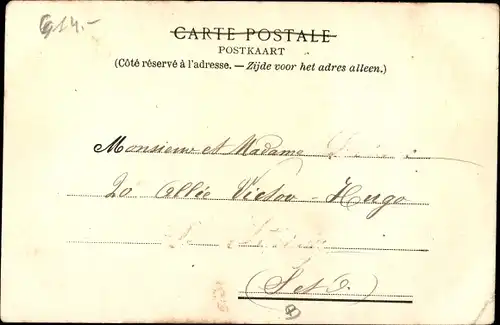 614.-
CARTE POSTALE
POSTKAART
(Côté réservé à l'adresse. — Zijde voor het adres alleen.)
Monsieur et Madame
20 Allée Victor-Hugo
(S et O.)